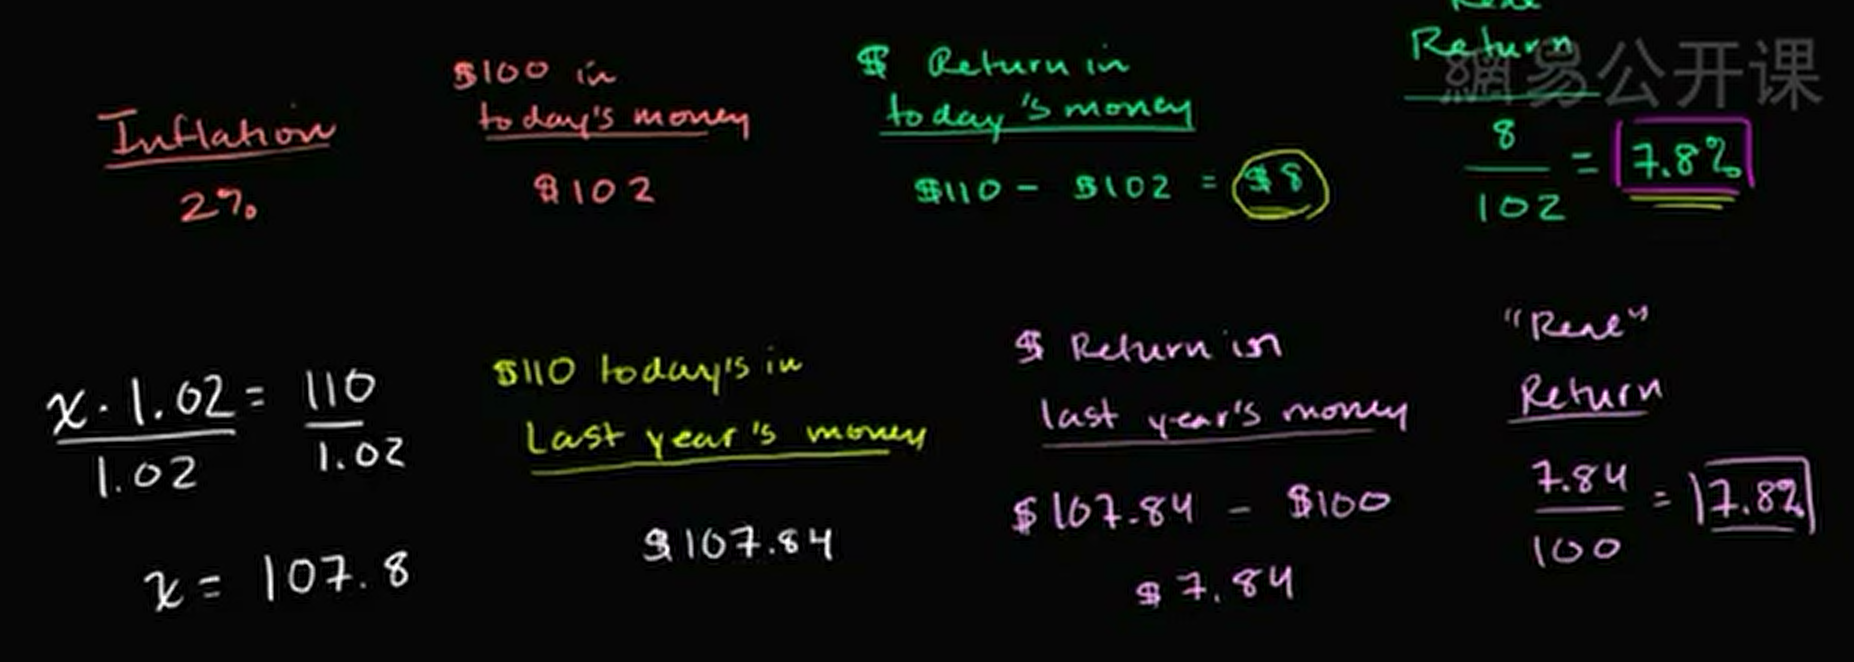 Real
Return
網易公开课
Inflation
2%
$100 in
today's money
$102
$ Return in
today's money
$110 - $102 = $8
8
102
= 7.8%
x · 1.02 = 110
1.02 1.02
x = 107.8
$110 today's in
Last year's money
$107.84
$ Return in
last year's money
$107.84 - $100
$7.84
"Real"
Return
7.84
100
= 7.8%